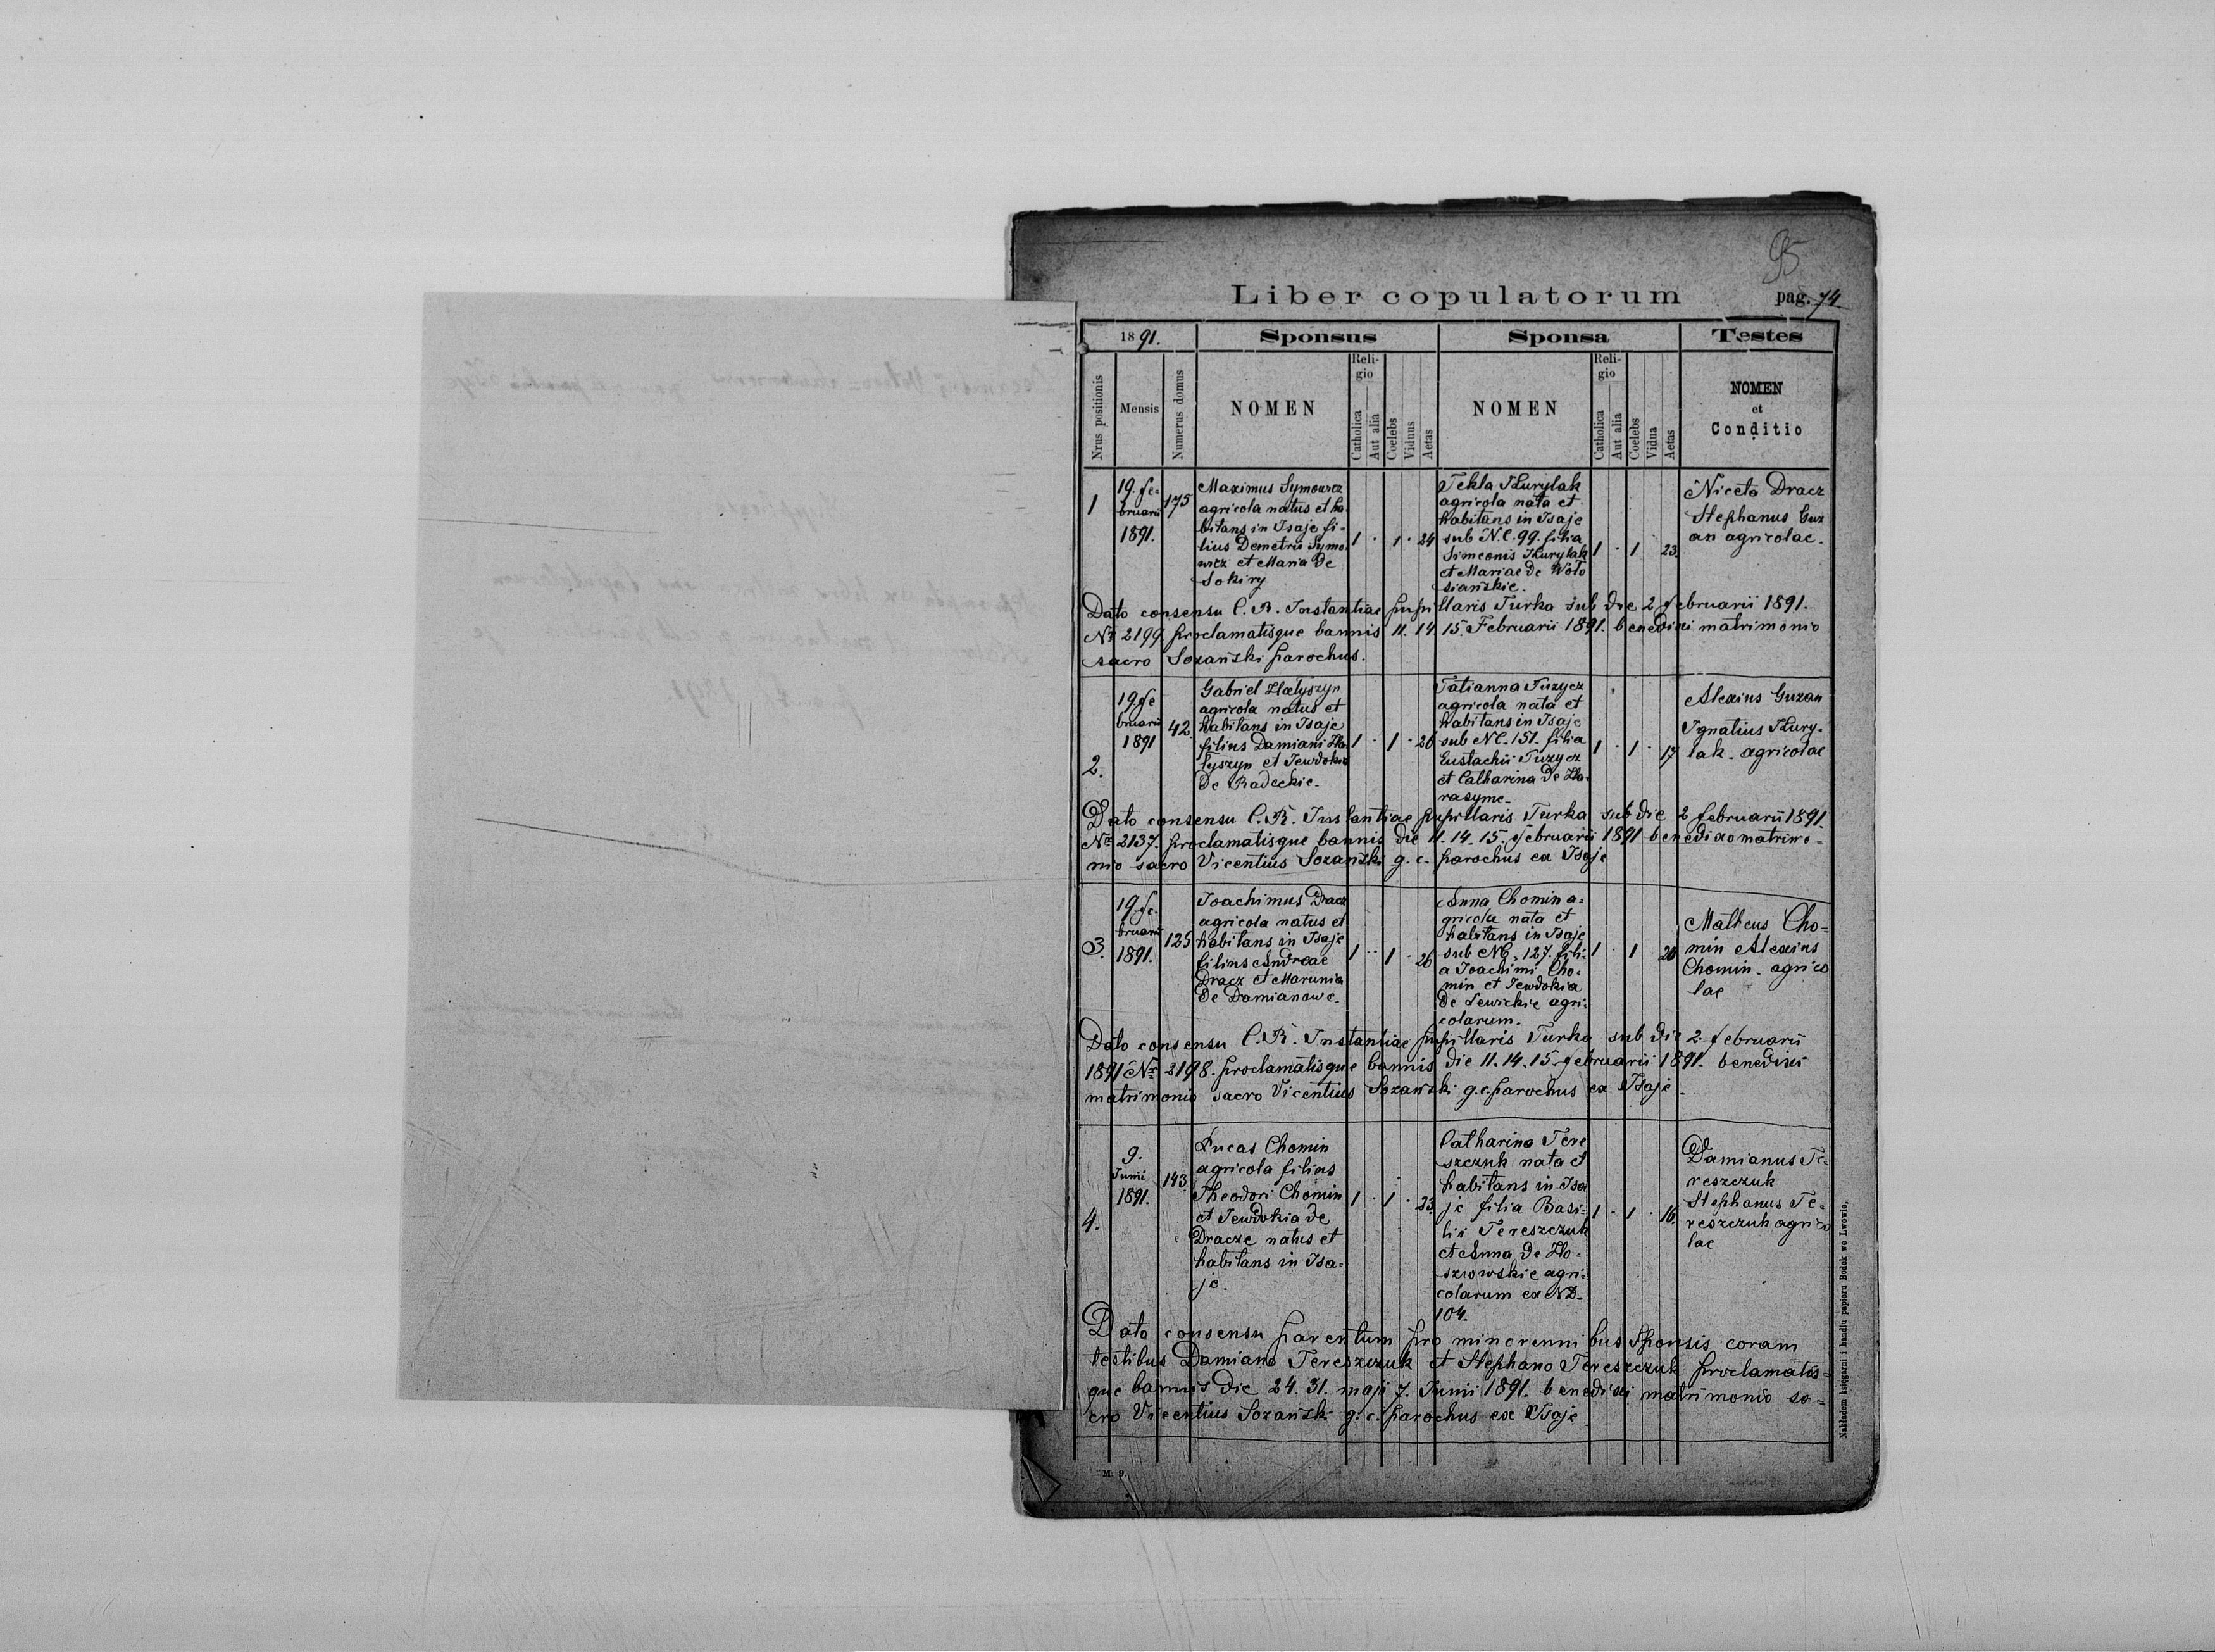 95
Liber copulatorum
pag. 74
1891.
Sponsus
Sponsa
Testes
Nrus positionis
Mensis
Numerus domus
NOMEN
Religio
Catholica
Aut alia
Coelebs
Viduus
Aetas
NOMEN
Religio
Catholica
Aut alia
Coelebs
Vidua
Aetas
NOMEN
et
Conditio
1
19. fe-
bruarii
1891.
175
Maximus Symowicz
agricola natus et ha-
bitans in Isaje fi-
lius Demetrii Symo-
wicz et Maria de
Sokiry
1 . 1 . 24
Tekla Kurylak
agricola nata et
habitans in Isaje
sub N.C. 99. filia
Simeonis Kurylak
et Mariae de Woło
siańskie.
1 . 1 23.
Niceta Dracz
Stephanus Guz
an agricolae.
Dato consensu C. R. Instantiae pupillaris Turka sub die 2 februarii 1891.
Nr 2199 proclamatisque bannis 11. 14 15. Februarii 1891. benedixi matrimonio
sacro Sozański parochus.
2.
19 fe
bruarii
1891
42.
Gabriel Hałyszyn
agricola natus et
habitans in Isaje
filius Damiani Ha
łyszyn et Jewdokia
de Radeckie.
1 . 1 . 26
Tatianna Tuzycz
agricola nata et
habitans in Isaje
sub NC. 151. filia
Eustachii Tuzycz
et Catharina de Ha-
rasyme.
1 . 1 . 17
Alexius Guzan
Ignatius Kury-
lak. agricolae
Dato consensu C. R. Instantiae pupillaris Turka sub die 2 februarii 1891.
Nr 2137. proclamatisque bannis die 11. 14. 15. februarii 1891 benedixo matrimo-
nio sacro Vicentius Sozański g. c. parochus ex Isaje
3.
19. fe-
bruarii
1891.
125
Joachimus Dracz
agricola natus et
habitans in Isaje
filius Andreae
Dracz et Marunia
de Damianowe.
1 . 1 . 26
Anna Chomin a-
gricola nata et
habitans in Isaje
sub NC. 127. fili-
a Joachimi Cho-
min et Jewdokia
de Lewickie agri-
colarum.
1 . 1 20
Matheus Cho-
min Alexius
Chomin. agrico
lae
Dato consensu C. R. Instantiae pupillaris Turka sub die 2 februarii
1891 Nr 2198. proclamatisque bannis die 11. 14. 15. februarii 1891. benedixi
matrimonio sacro Vicentius Sozański g. c. parochus ex Isaje.
4.
9.
Junii
1891.
143.
Lucas Chomin
agricola filius
Theodori Chomin
et Jewdokia de
Dracze natus et
habitans in Isa-
je.
1 . 1 . 23.
Catharina Tere
szczuk nata et
habitans in Isa
je filia Basi-
lii Tereszczuk
et Anna de Ho-
szowskie agri-
colarum ex ND.
104.
1 . 1 . 16.
Damianus Te-
reszczuk
Stephanus Te-
reszczuk agrico
lae
Dato consensu parentum pro minorennibus sponsis coram
testibus Damiano Tereszczuk et Stephano Tereszczuk proclamatis-
que bannis die 24. 31. maji 7. Junii 1891. benedixi matrimonio sa-
cro Vicentius Sozański g. c. parochus ex Isaje
M. 9.
Nakładem księgarni i handlu papieru Bodek we Lwowie.